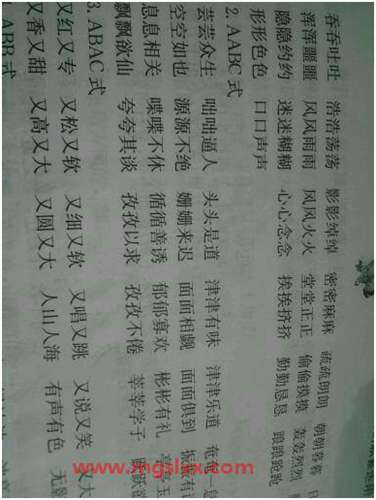 吞吞吐吐 浩浩荡荡 影影绰绰 密密麻麻 疏疏朗朗 朝朝暮暮
浑浑噩噩 风风雨雨 风风火火 堂堂正正 偷偷摸摸 轰轰烈烈
隐隐约约 迷迷糊糊 心心念念 挨挨挤挤 勤勤恳恳
形形色色 口口声声
2. AABC 式
芸芸众生 咄咄逼人 头头是道 津津有味 津津乐道 奄奄一
空空如也 源源不绝 姗姗来迟 面面相觑 面面俱到 振振有
息息相关 喋喋不休 循循善诱 郁郁寡欢 彬彬有礼
飘飘欲仙 夸夸其谈 孜孜以求 孜孜不倦 莘莘学子
3. ABAC 式
又红又专 又松又软 又细又软 又唱又跳 又说又笑 又大
又香又甜 又高又大 又圆又大 人山人海 有声有色 无影
ABB 式